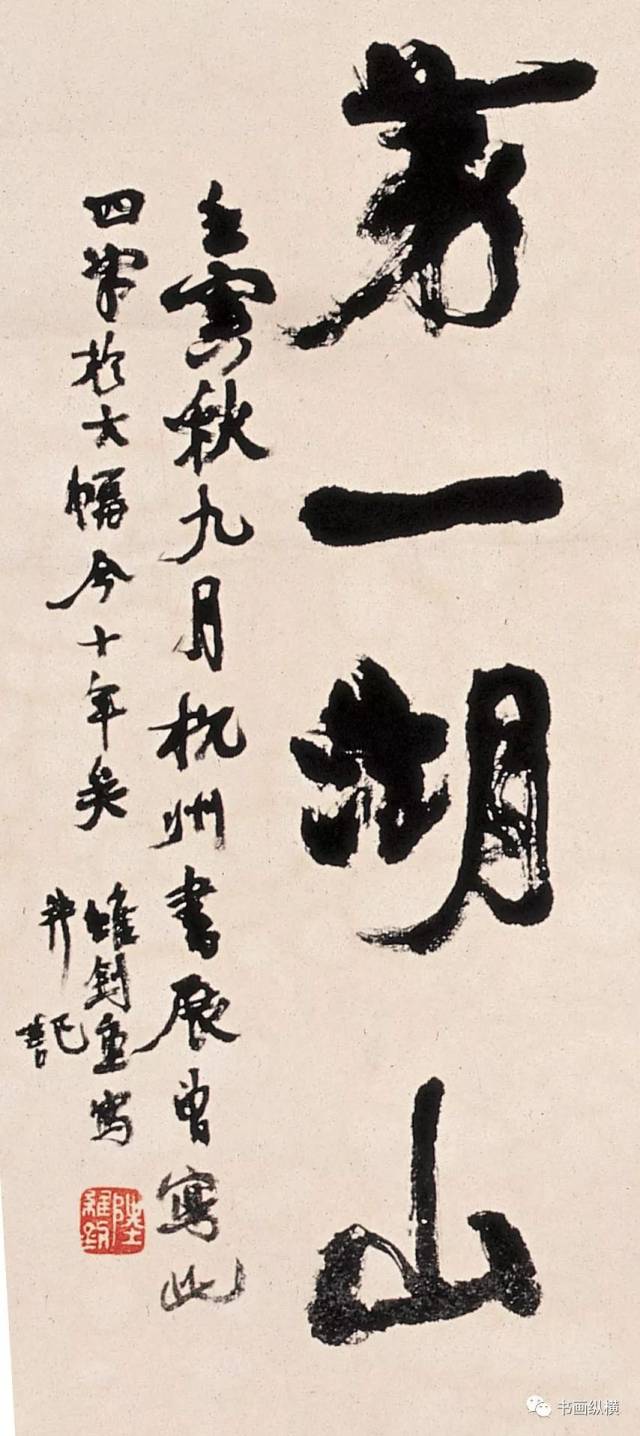 第一湖山
壬寅秋九月杭州書展曾寫此
四字於大幅今十年矣
維釗重寫
并記
陸維釗
书画纵横